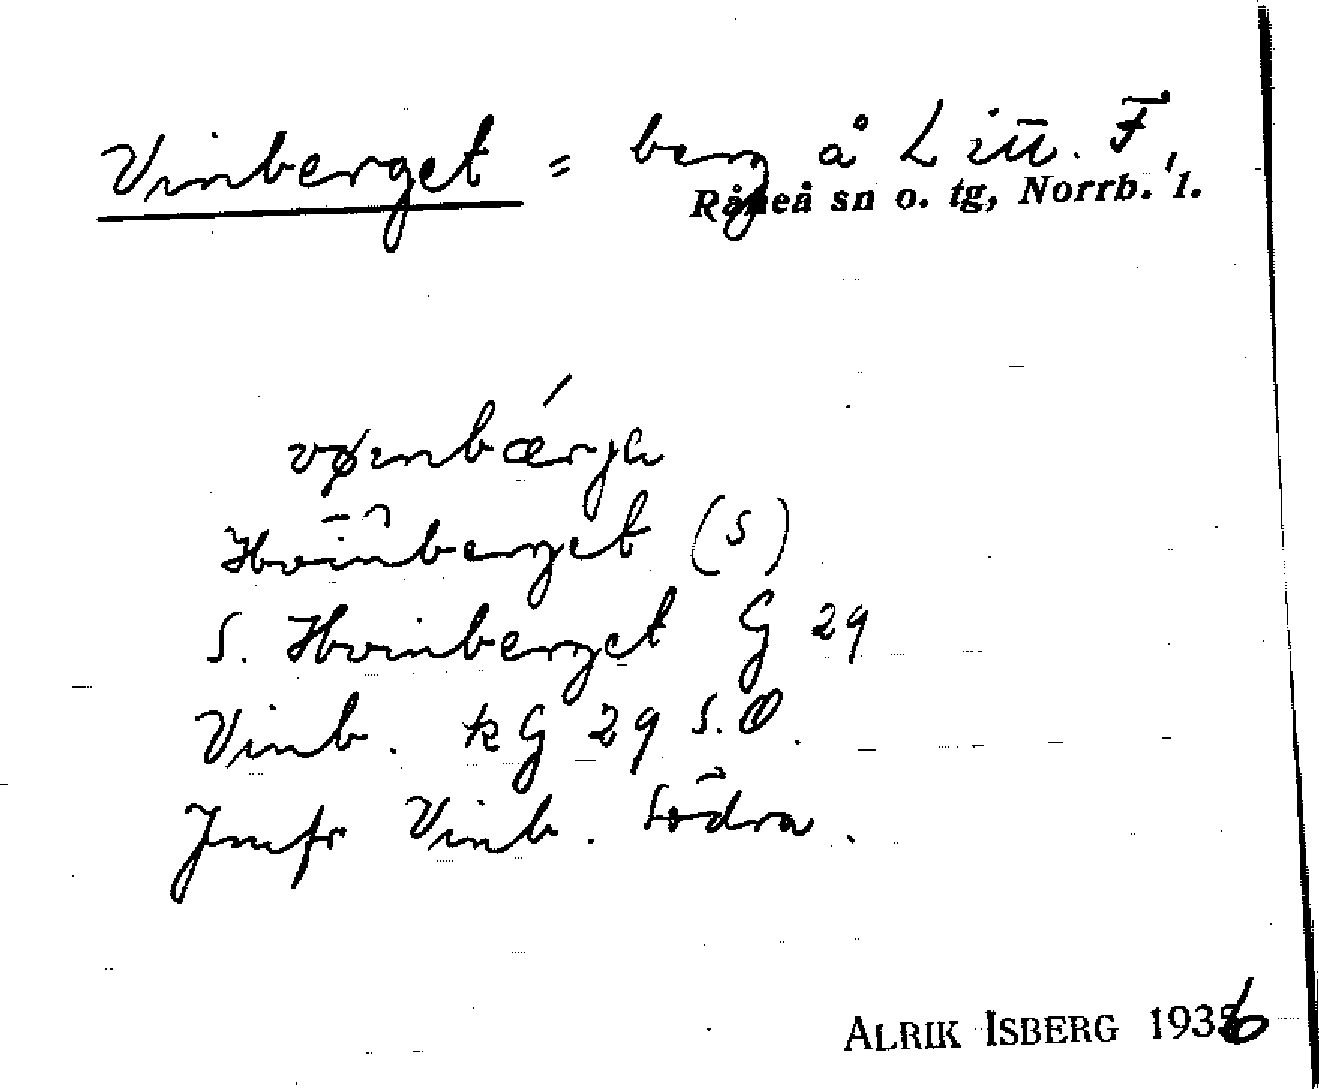 Vinberget = berg å Litt. F,
Råneå sn o. tg, Norrb. l.
vøinbǽrga
Hvinberget (S)
S. Hvinberget G 29
Vinb. kG 29 S.O.
Jmfr Vinb. Södra.
ALRIK ISBERG 1936